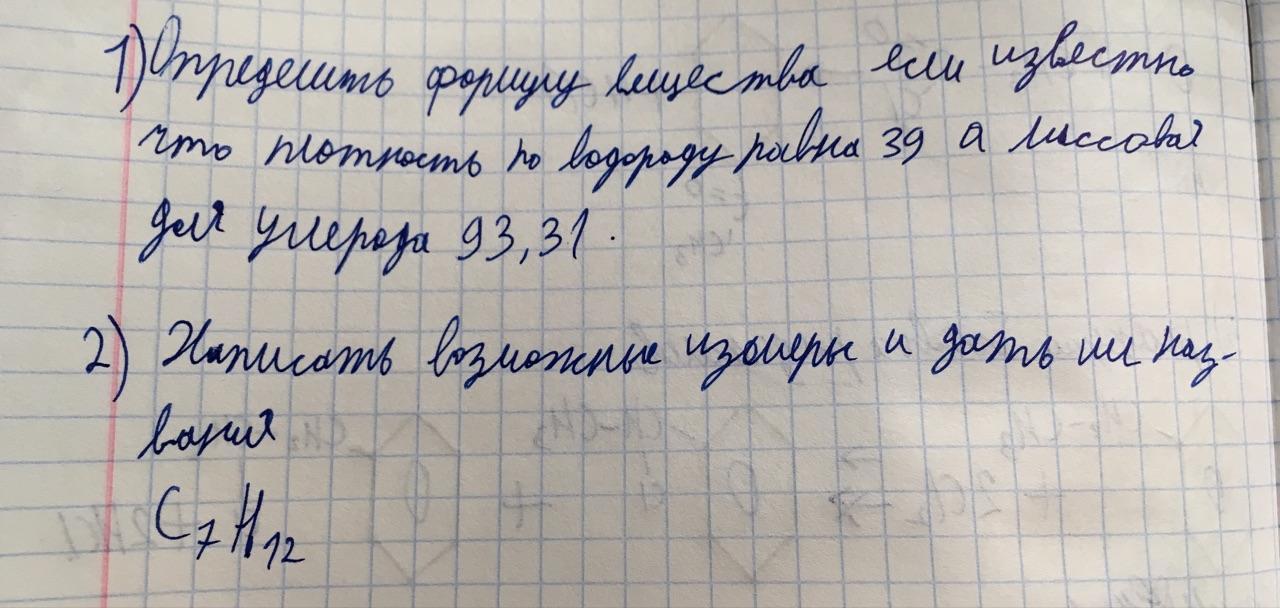 1) Определить формулу вещества если известно
что плотность по водороду равна 39 а массовая
доля углерода 93,31.
2) Написать возможные изомеры и дать им наз-
вания
C₇H₁₂